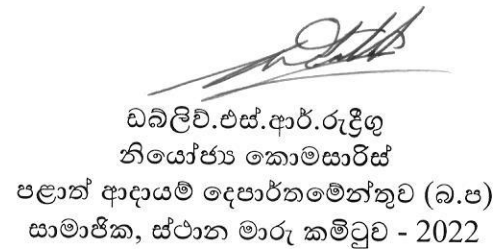 ඩබ්ලිව්.එස්.ආර්.රුද්‍රිගු
නියෝජ්‍ය කොමසාරිස්
පළාත් ආදායම් දෙපාර්තමේන්තුව (බ.ප)
සාමාජික, ස්ථාන මාරු කමිටුව - 2022